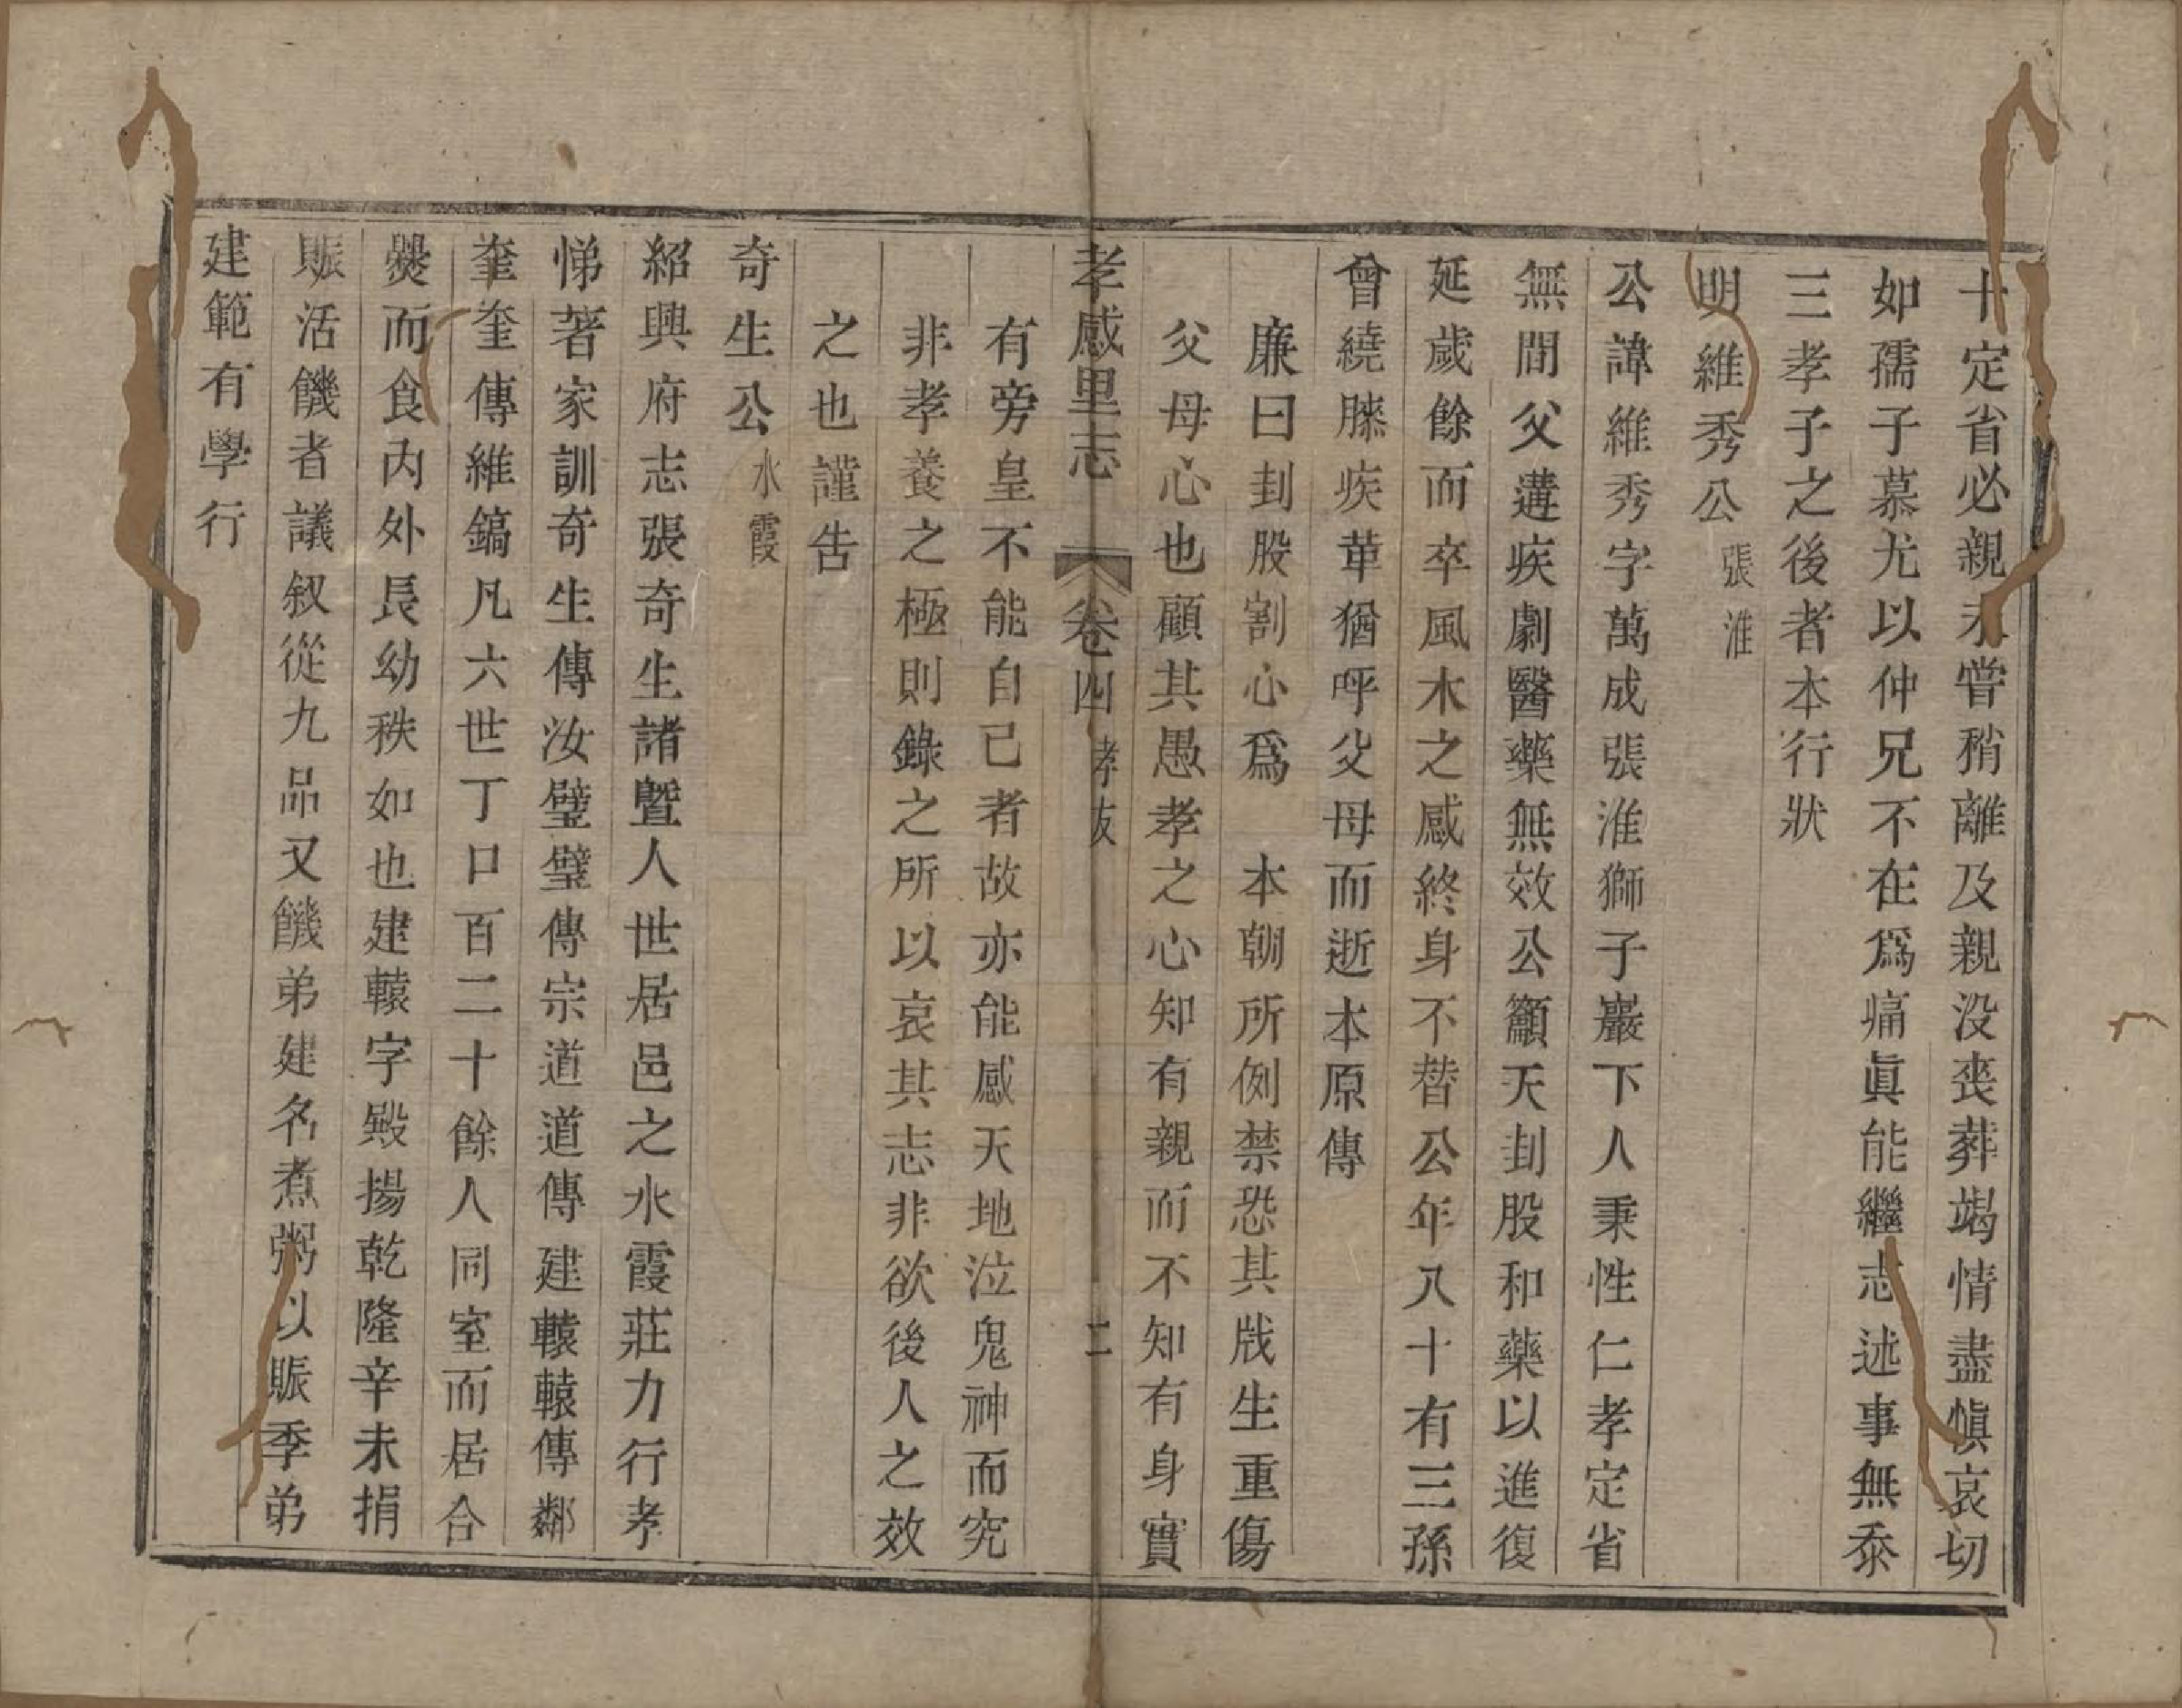 十定省必親未嘗稍離及親没喪葬竭情盡愼哀切
如孺子慕尤以仲兄不在爲痛眞能繼志述事無忝
三孝子之後者本行狀
明維秀公張淮
公諱維秀字萬成張淮獅子巖下人秉性仁孝定省
無間父遘疾劇醫藥無效公籲天刲股和藥以進復
延歲餘而卒風木之感終身不替公年八十有三孫
曾繞膝疾革猶呼父母而逝本原傳
廉曰刲股割心爲　本朝所例禁恐其戕生重傷
父母心也顧其愚孝之心知有親而不知有身實
孝感里志　卷四　孝友　二
有旁皇不能自已者故亦能感天地泣鬼神而究
非孝養之極則錄之所以哀其志非欲後人之效
之也謹告
奇生公水霞
紹興府志張奇生諸曁人世居邑之水霞莊力行孝
悌著家訓奇生傳汝璧璧傳宗道道傳建轅轅傳鄰
奎奎傳維鎬凡六世丁口百二十餘人同室而居合
爨而食內外長幼秩如也建轅字殿揚乾隆辛未捐
賑活饑者議叙從九品又饑弟建名煮粥以賑季弟
建範有學行